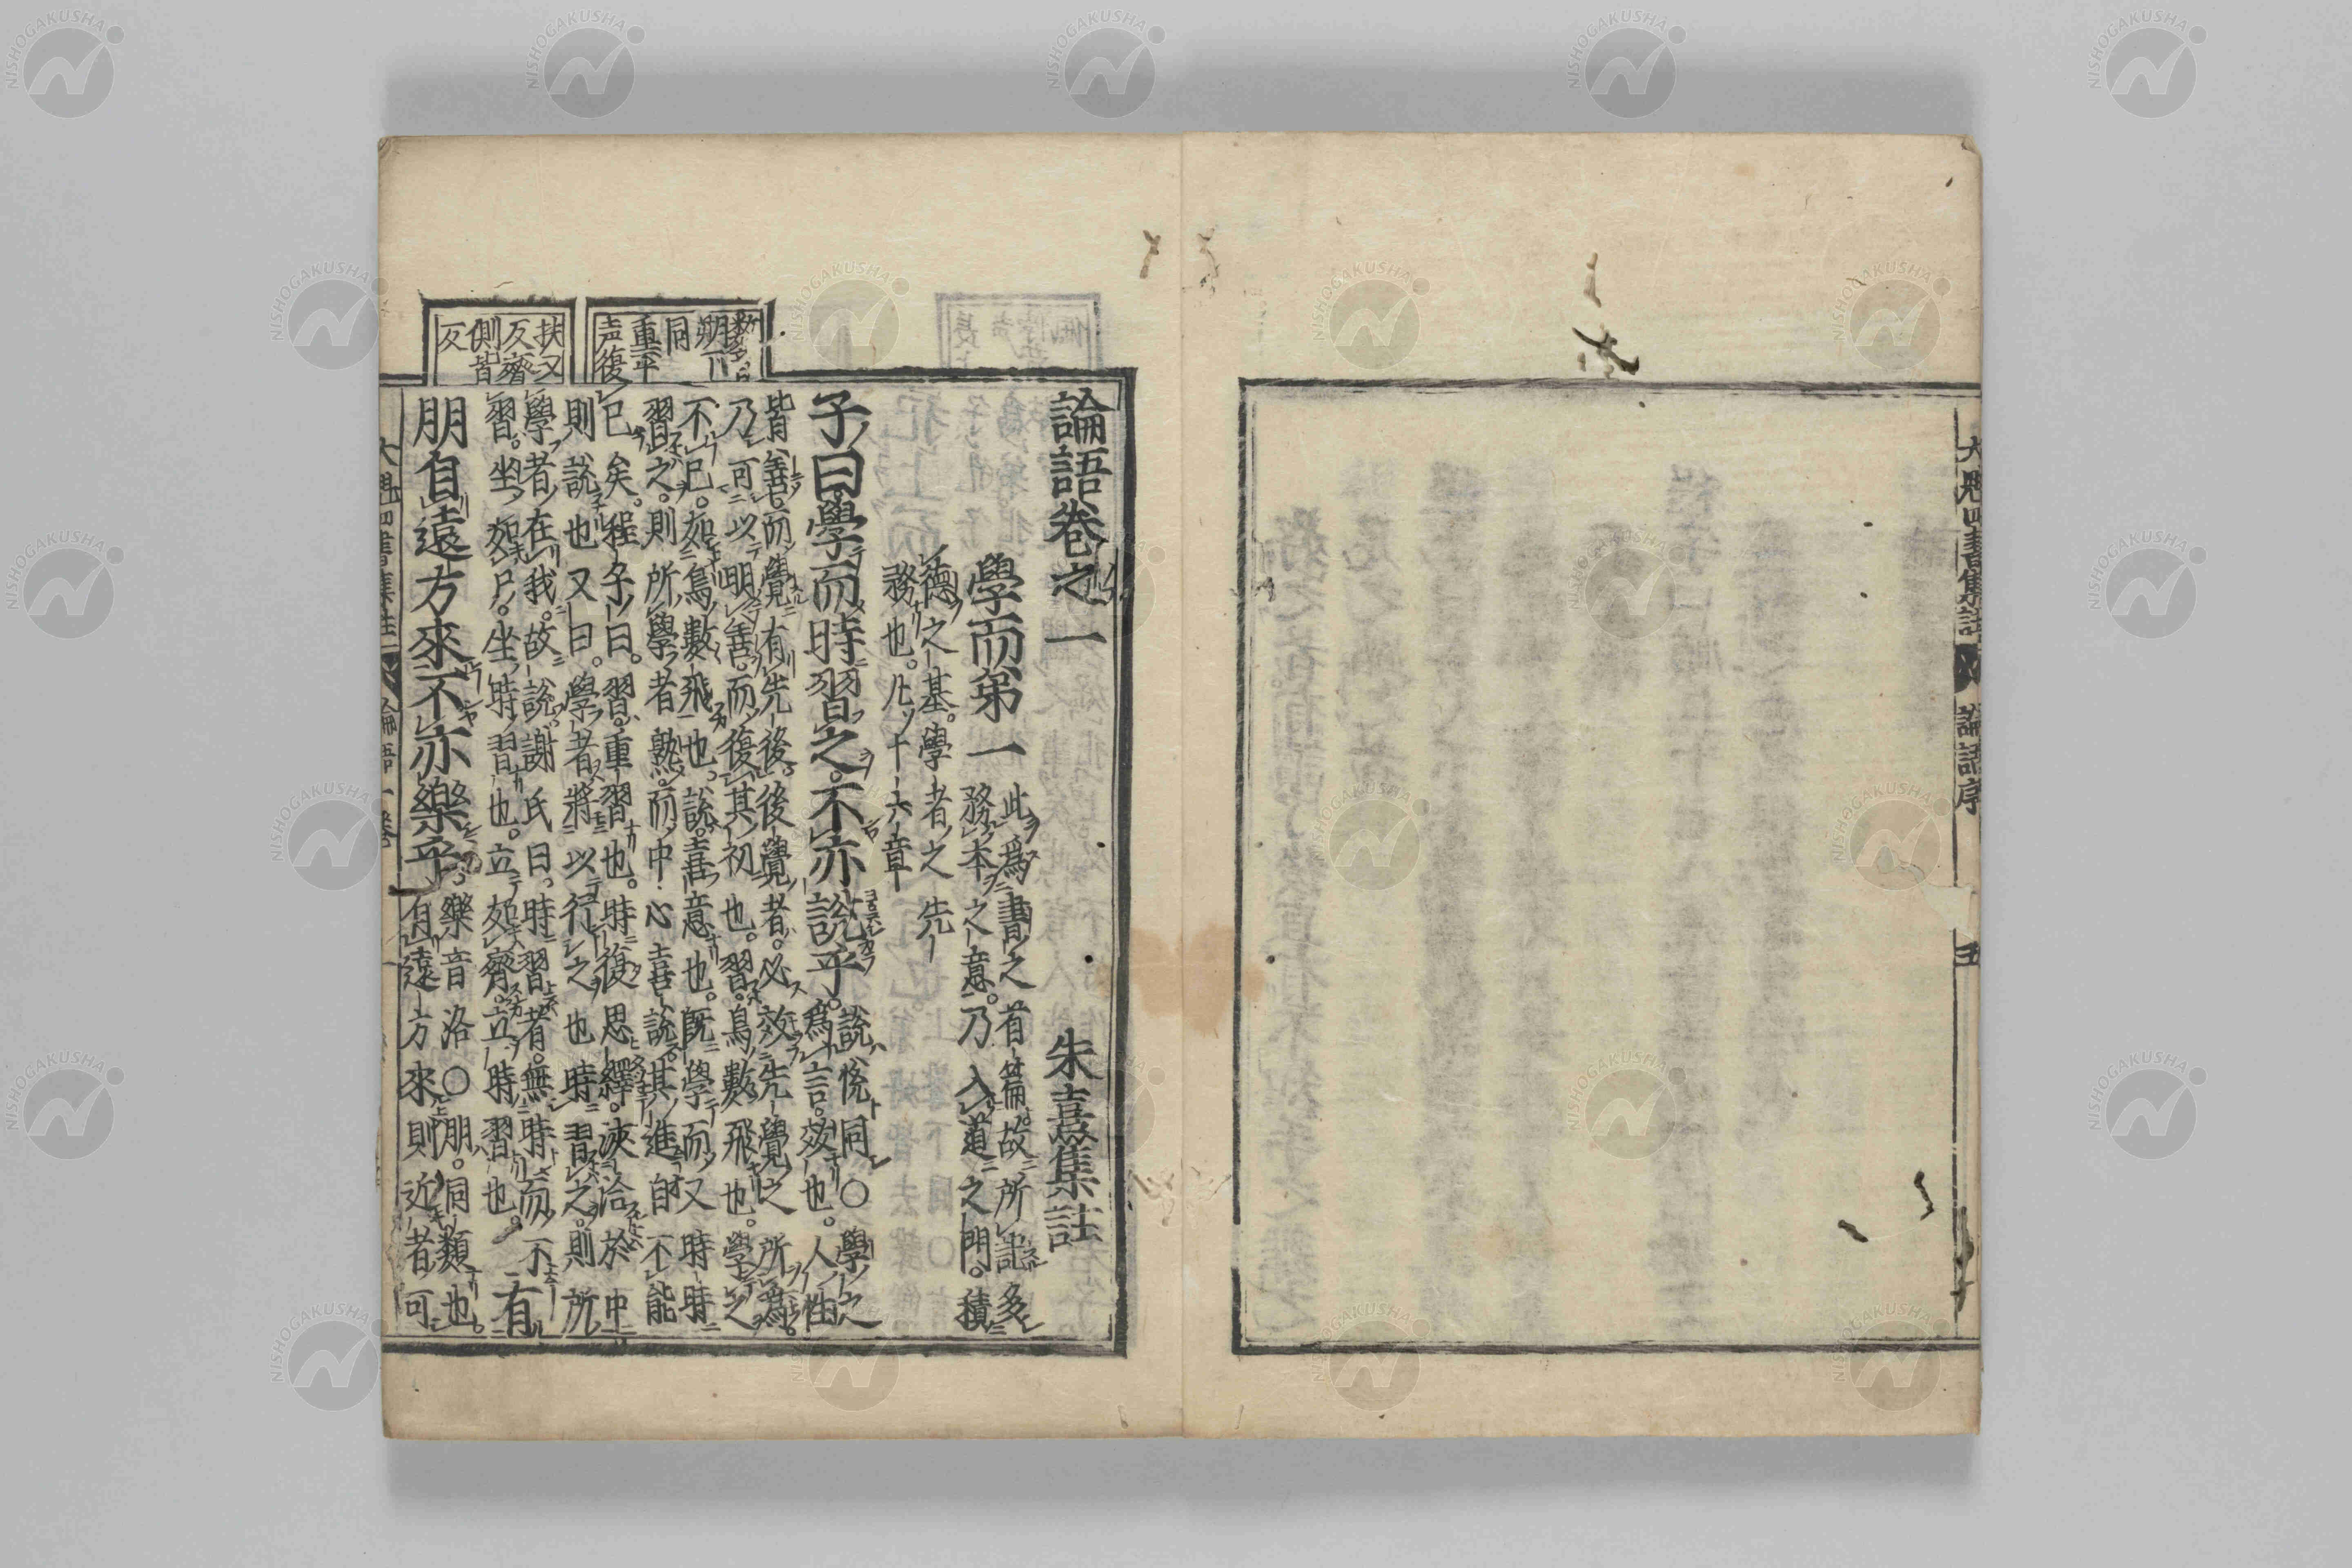 大魁四書集註 論語序 五
論語卷之一 朱熹集註
學而第一
此爲書之首篇。故所記多
務本之意。乃入道之門。積
德之基。學者之先
務也。凡十六章
子曰學而時習之。不亦說乎。
說悅同○學之
爲言。效也。人性
皆善。而覺有先後。後覺者。必效先覺之所爲。
乃可以明善。而復其初也。習。鳥數飛也。學之
不已。如鳥數飛也。說。喜意也。既學而又時時
習之。則所學者熟。而中心喜說。其進自不能
已矣。程子曰。習。重習也。時復思繹。浹洽於中
則說也又曰。學者將以行之也時習之。則所
學者在我。故說謝氏曰。時習者。無時而不
習。坐如尸。坐時習也。立如齊。立時習也。
有
朋自遠方來不亦樂乎。
樂音洛○朋。同類也。
自遠方來則近者可
朔下
同
重平
声復
扶又
反齊
側皆
反
大魁四書集註 論語一卷 一
NISHOGAKUSHA